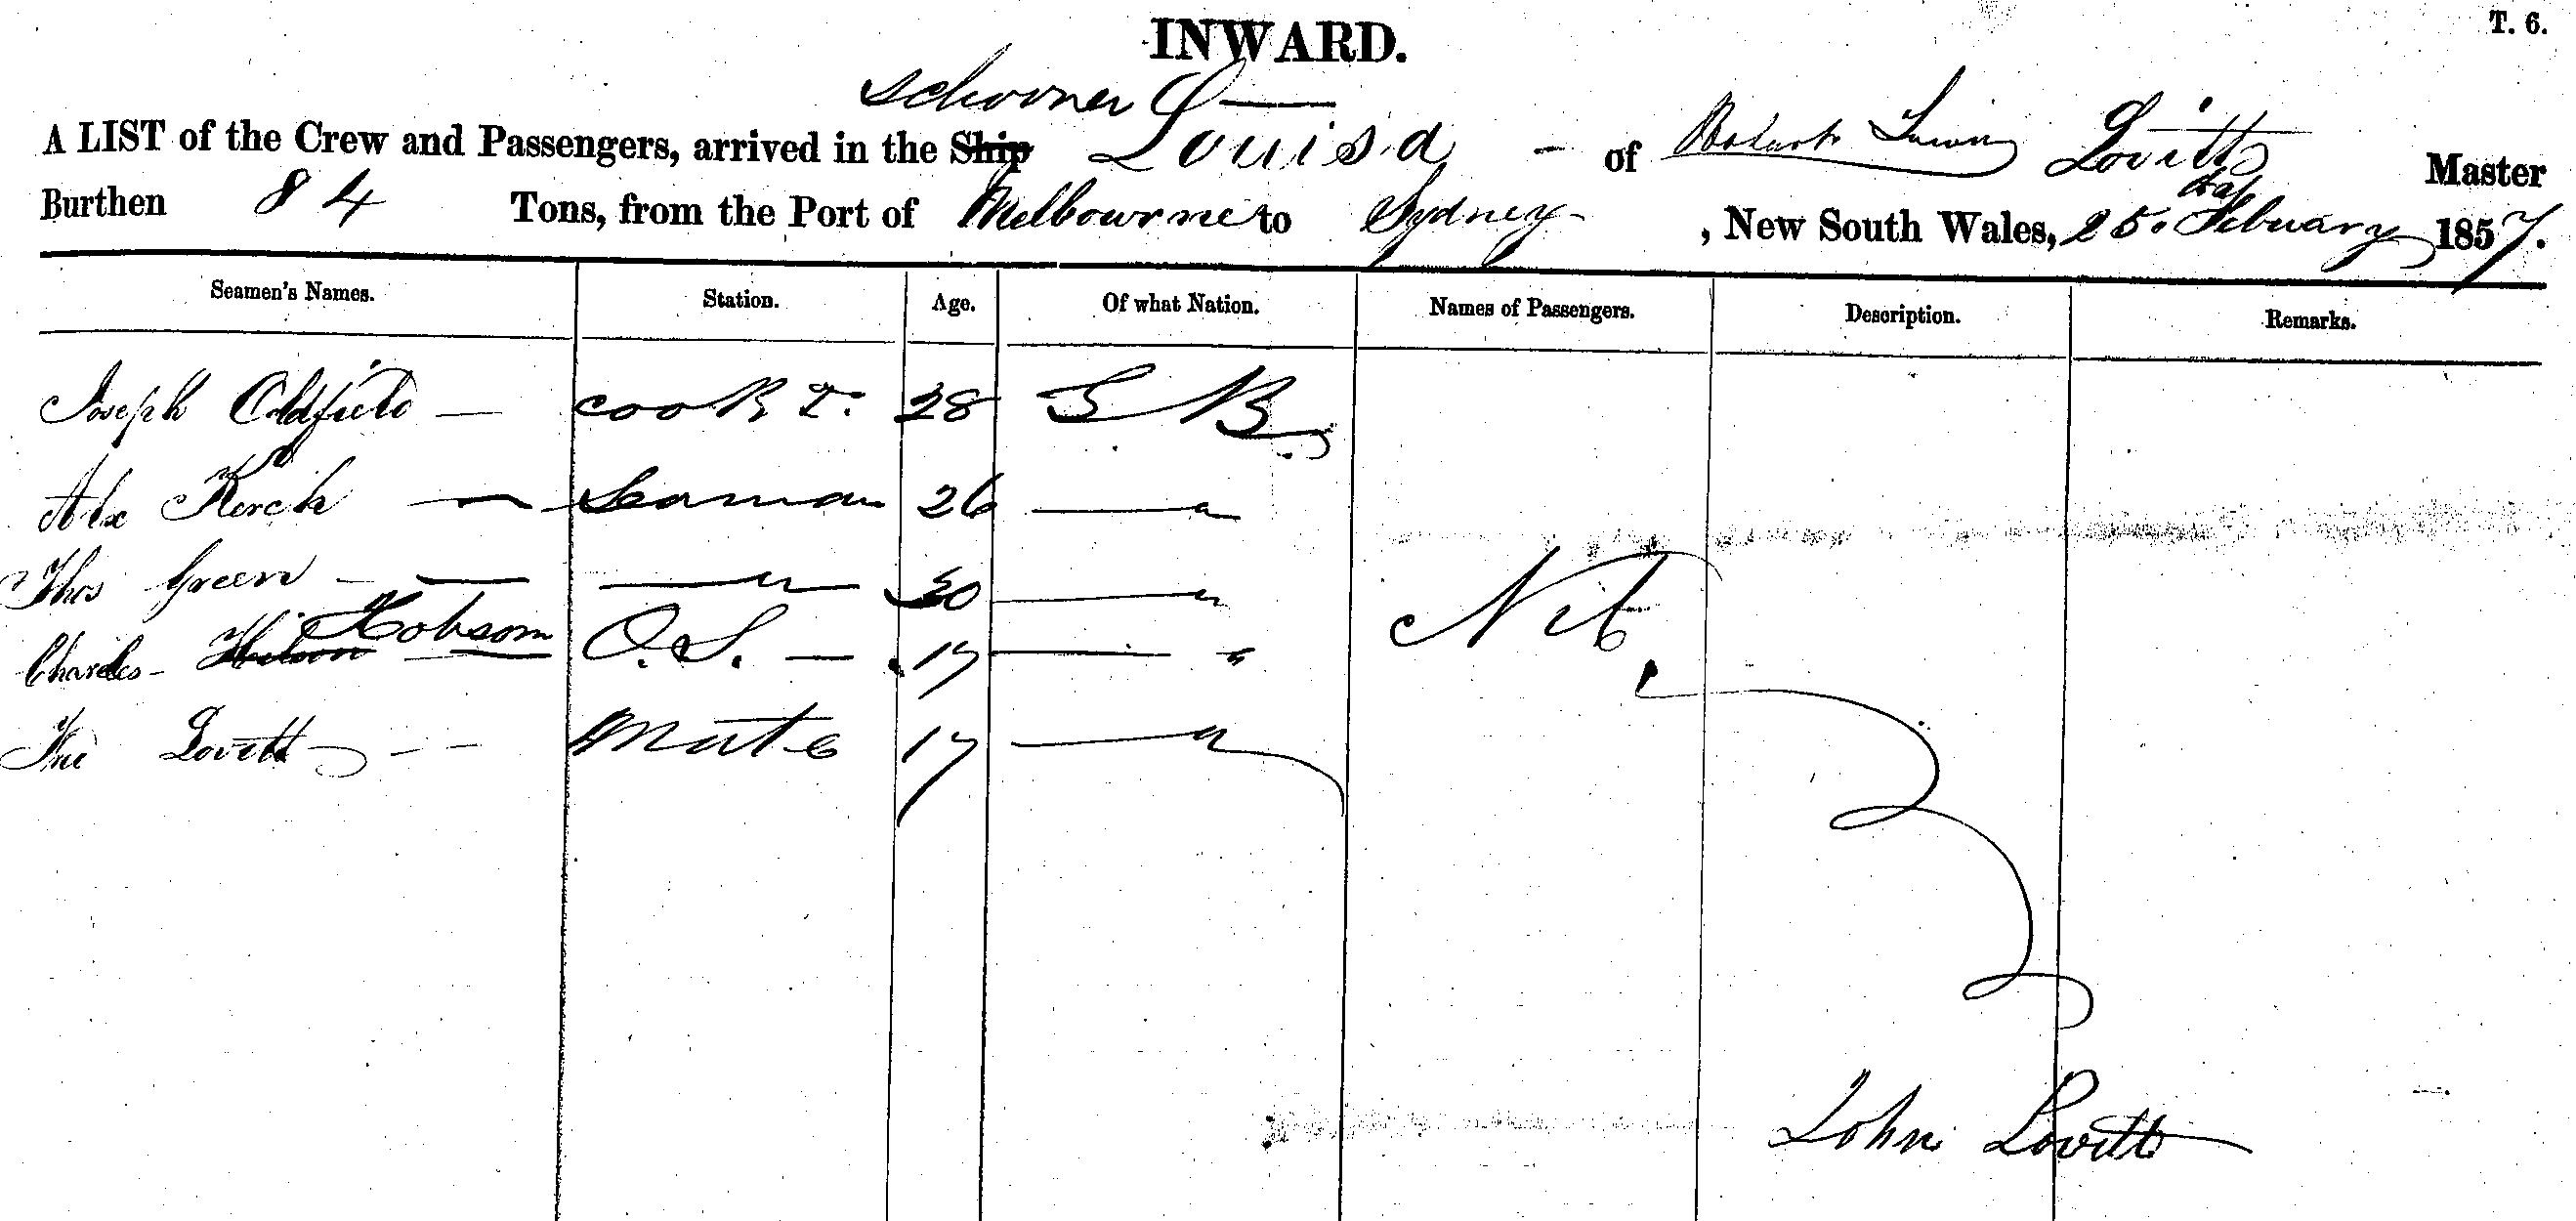 T. 6.
INWARD.
schooner
A LIST of the Crew and Passengers, arrived in the Ship Louisa - of Robert Lovitt Master
day
Burthen 84 Tons, from the Port of Melbourne to Sydney , New South Wales, 25. Febuary 1857.
Seamen's Names. Station. Age. Of what Nation. Names of Passengers. Description. Remarks.
Joseph Oldfield — cook 28 B
Alex — Seaman 26 — "
Thos Green — — " 30 — "
Charles Hobson O.S. — 17 — "
Nil
Lovitt - - mate 17 — "
John Lovitt